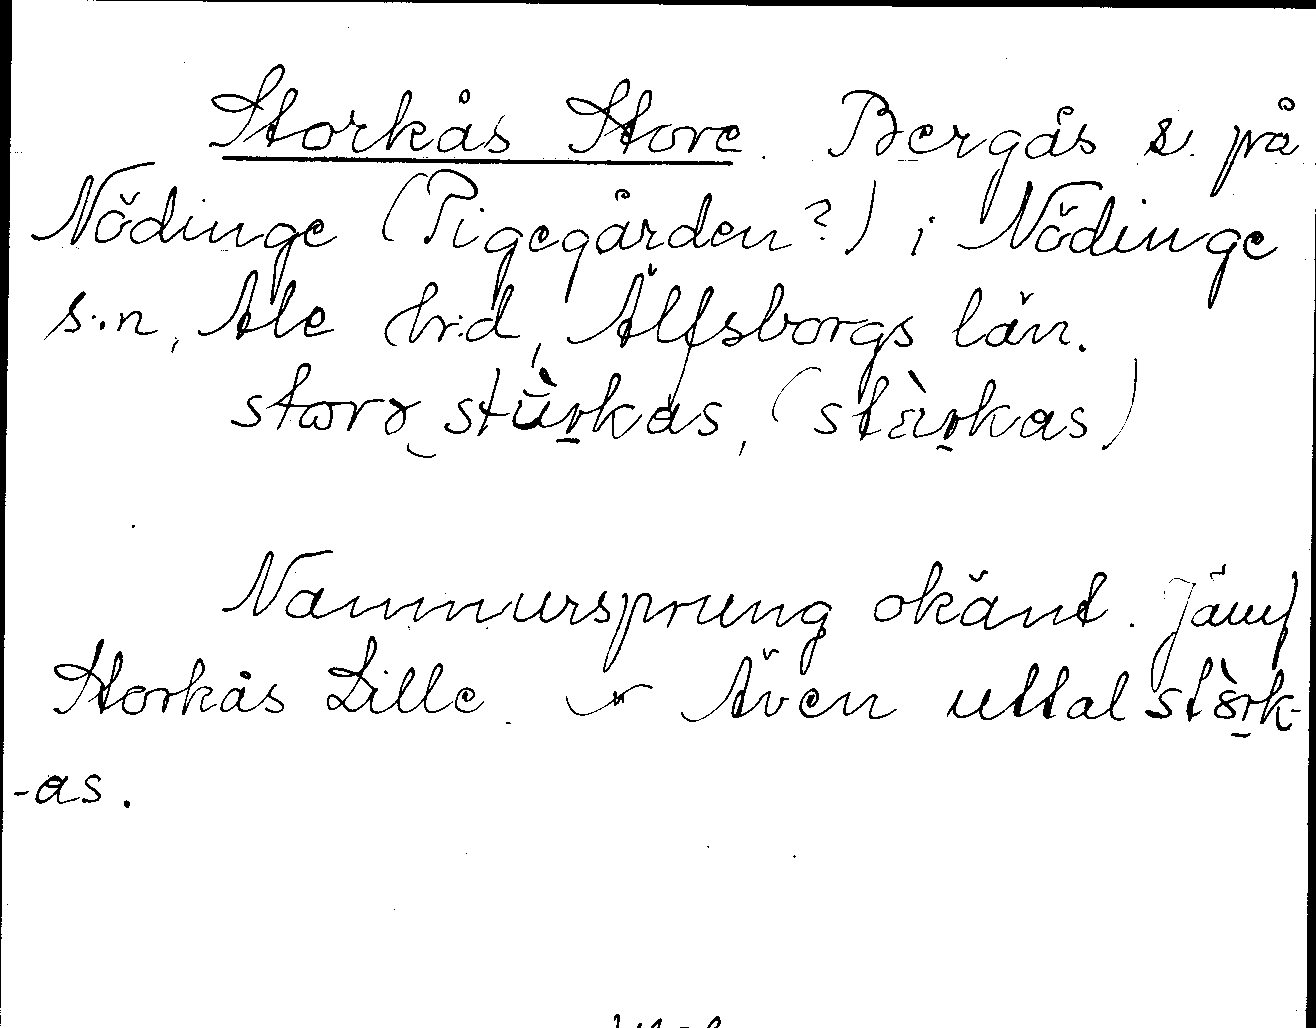 Storkås Store. Bergås s. på
Nödinge (Pigegården?) i Nödinge
s:n, Ale h:d, Älfsborgs län.
storə stùrkas, (stàrkas)
Namnursprung okänt. Jämf
Storkås Lille. Även uttal stòrk-
-as.